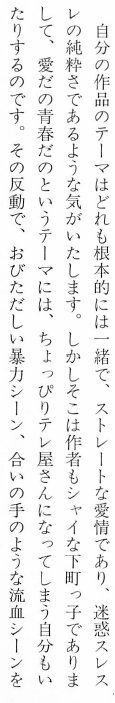 自分の作品のテーマはどれも根本的には一緒で、ストレートな愛情であり、迷惑スレス
レの純粋さであるような気がいたします。しかしそこは作者もシャイな下町っ子でありま
して、愛だの青春だのというテーマには、ちょっぴりテレ屋さんになってしまう自分もい
たりするのです。その反動で、おびただしい暴力シーン、合いの手のような流血シーンを